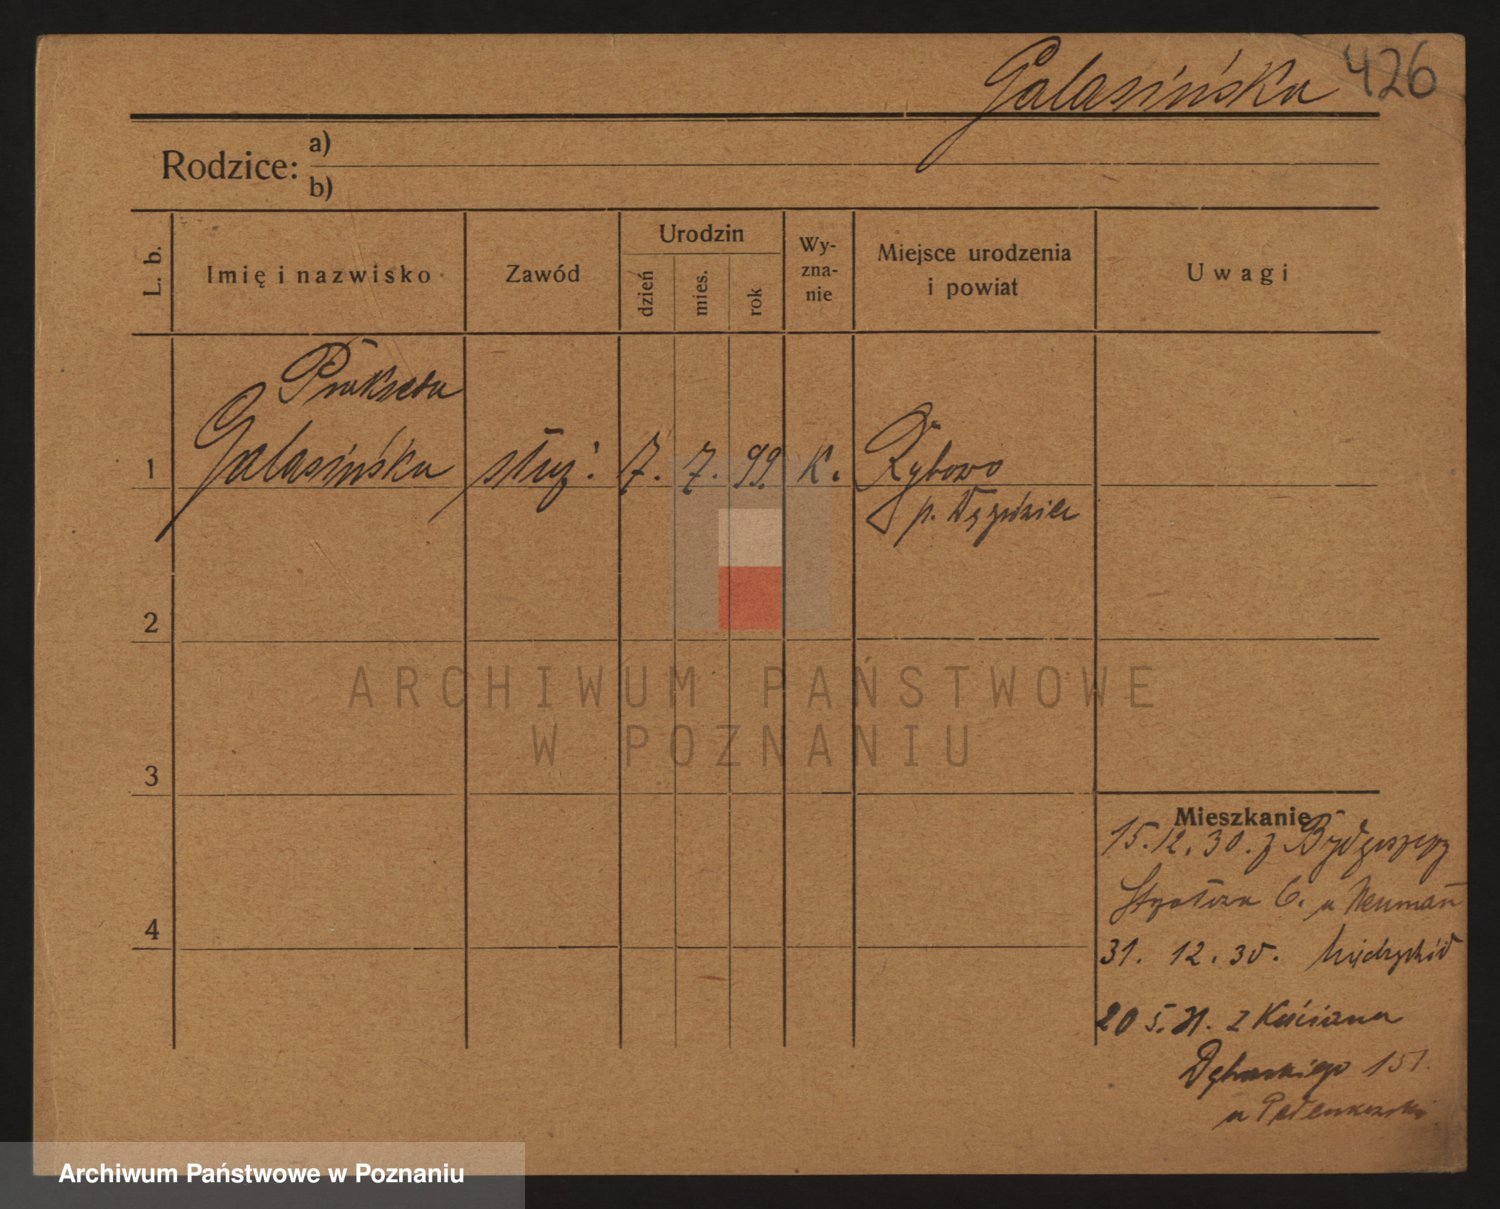 Galasińska 426
Rodzice: a)
b)
L. b.
Imię i nazwisko
Zawód
Urodzin
dzień
mies.
rok
Wy-
zna-
nie
Miejsce urodzenia
i powiat
Uwagi
Prakseda
1 Galasińska służ. 7. 7. 99. k. Rybowo
p. Wą
2
3
4
ARCHIWUM PAŃSTWOWE
W POZNANIU
Mieszkanie
15.12.30. z Bydgoszczy
6. u Neuman
31. 12. 30. Międzychód
20 5. 31. z Kościana
Dąbrowskiego 151.
u
Archiwum Państwowe w Poznaniu